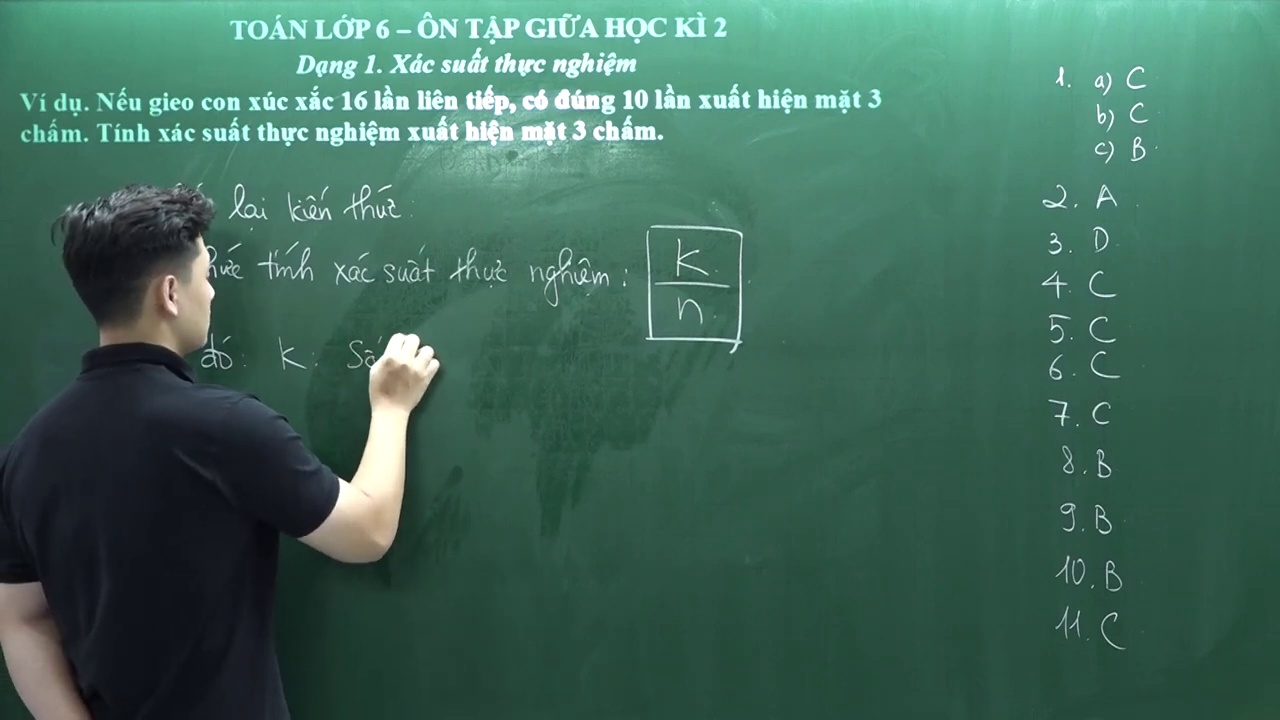 TOÁN LỚP 6 – ÔN TẬP GIỮA HỌC KÌ 2
Dạng 1. Xác suất thực nghiệm
Ví dụ. Nếu gieo con xúc xắc 16 lần liên tiếp, có đúng 10 lần xuất hiện mặt 3
chấm. Tính xác suất thực nghiệm xuất hiện mặt 3 chấm.
lại kiến thức:
tính xác suất thực nghiệm:
k
n
đó: k: Số
1. a) C
b) C
c) B
2. A
3. D
4. C
5. C
6. C
7. C
8. B
9. B
10. B
11. C